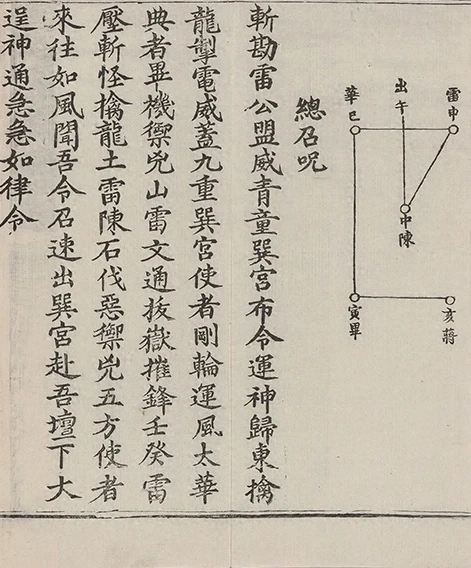 雷申
亥蔣
出午
中陳
華巳
寅畢
總召呪
斬勘雷公盟威青童巽宮布令運神歸東擒
龍掣電威蓋九重巽宮使者剛輪運風太華
典者畢機禦兇山雷文通拔嶽摧鋒壬癸雷
壓斬怪擒龍土雷陳石伐惡禦兇五方使者
來往如風聞吾令召速出巽宮赴吾壇下大
逞神通急急如律令